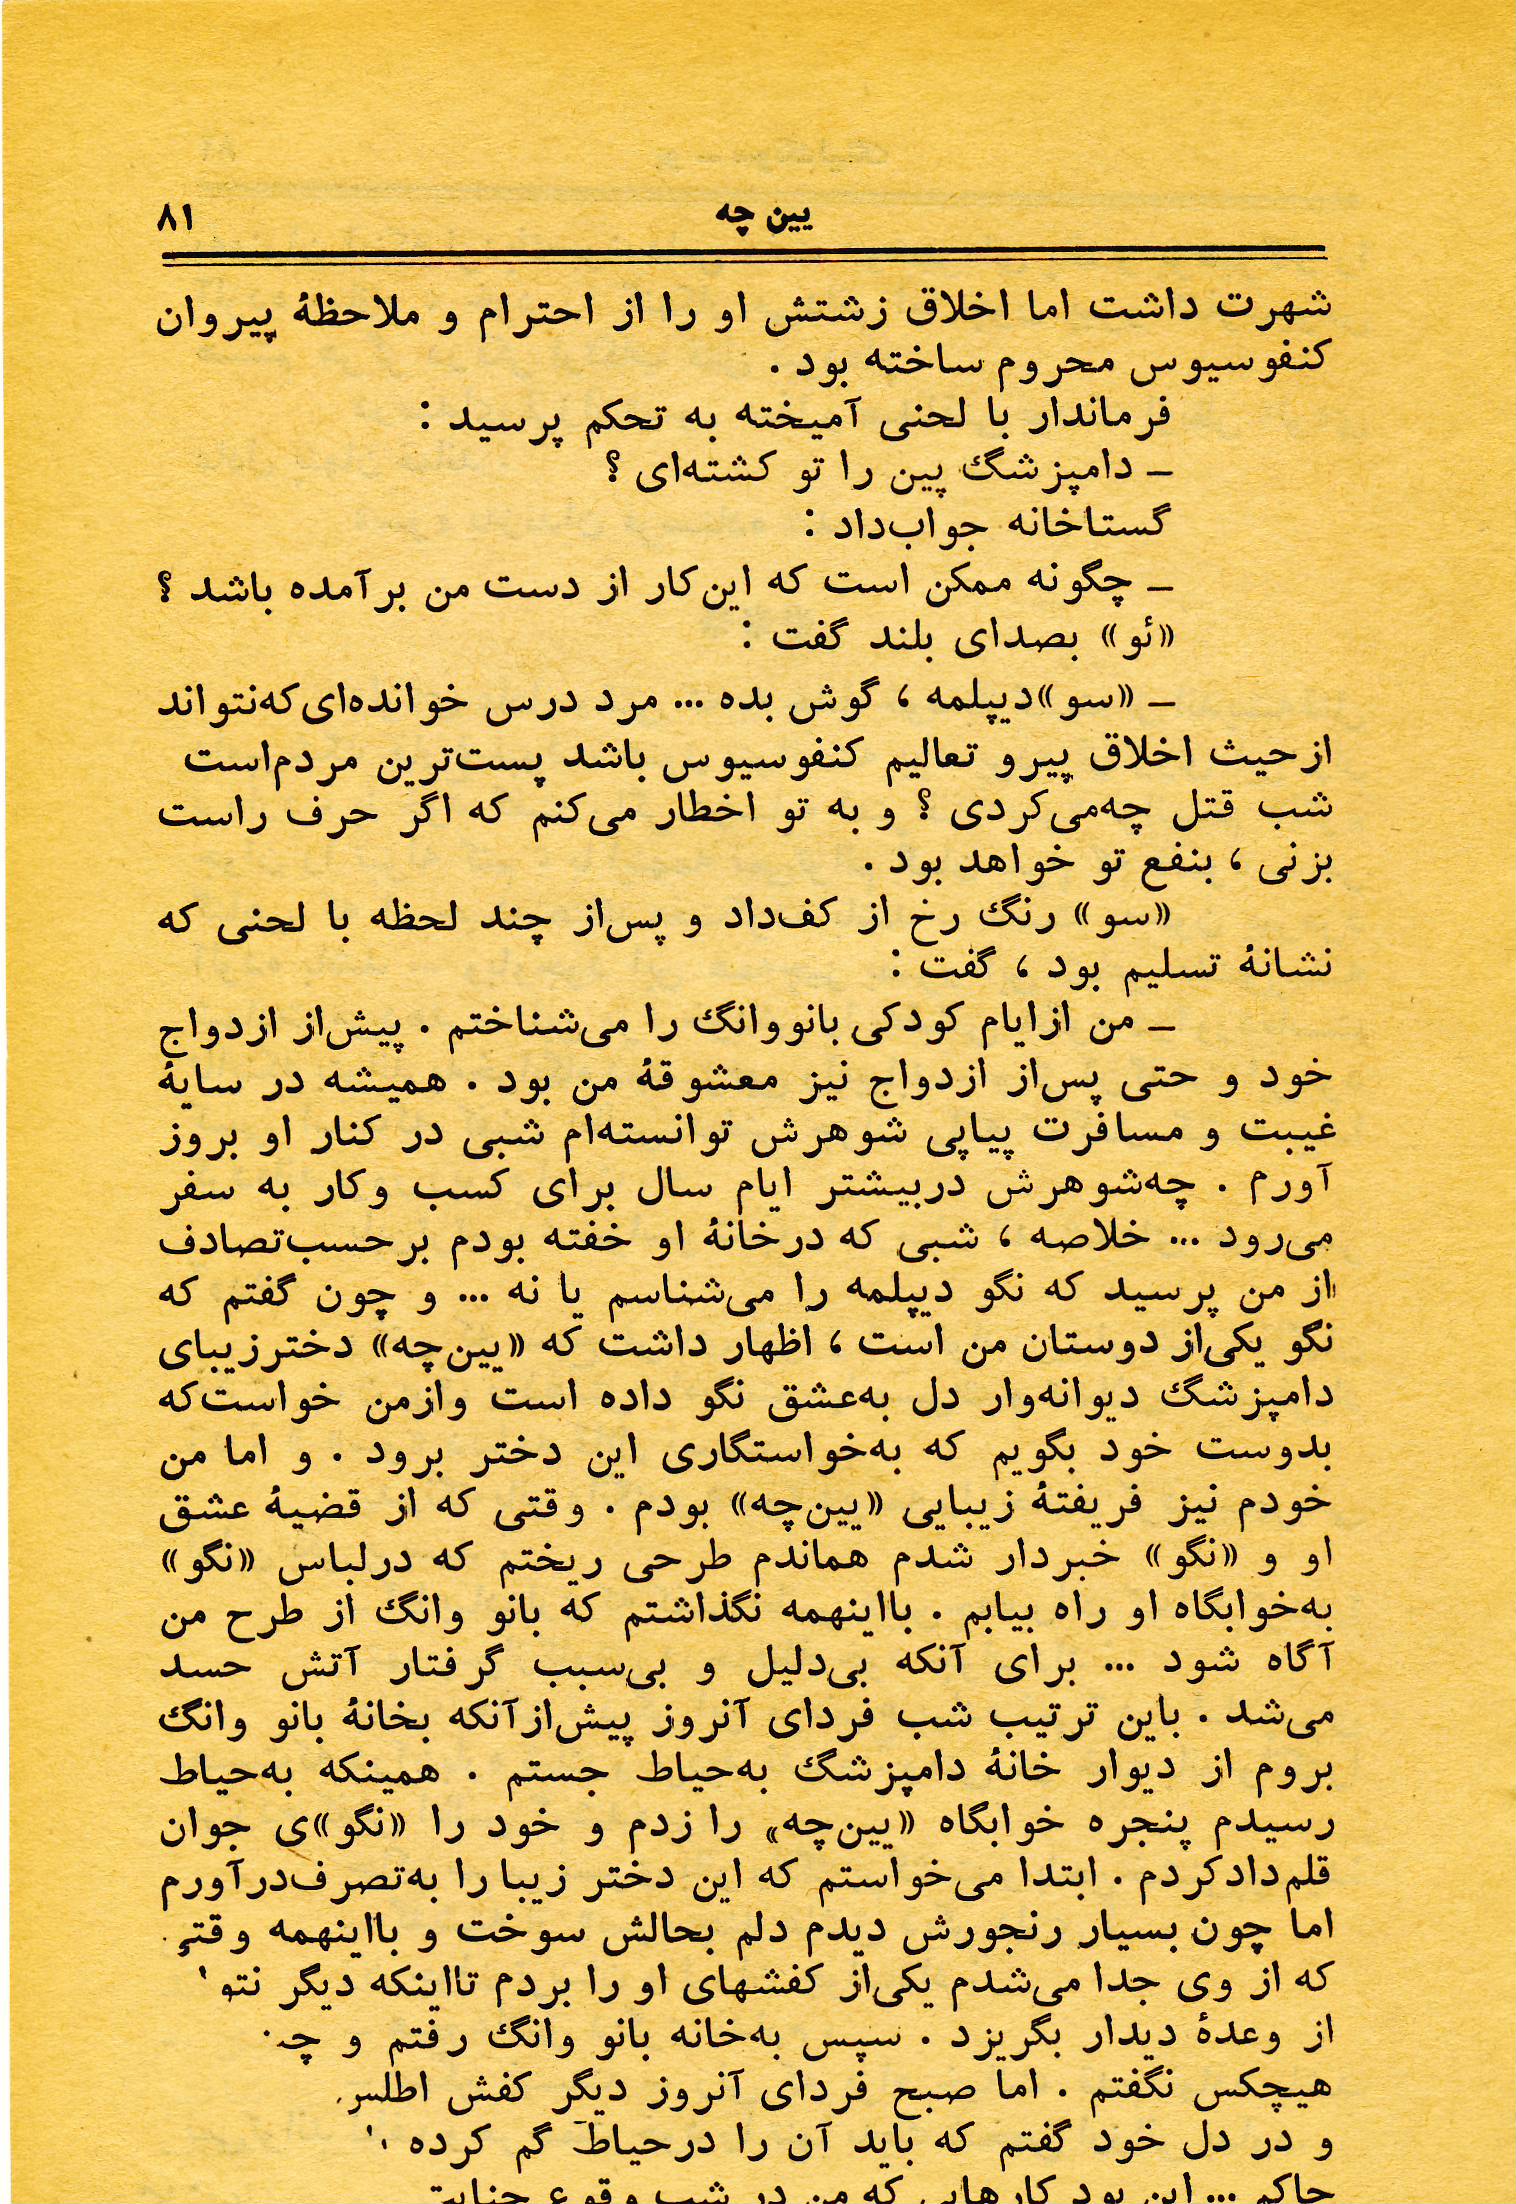 یین چه
۸۱
شهرت داشت اما اخلاق زشتش او را از احترام و ملاحظهٔ پیروان
کنفوسیوس محروم ساخته بود .
فرماندار با لحنی آمیخته به تحکم پرسید :
ـ دامپزشگ پین را تو کشته‌ای ؟
گستاخانه جواب‌داد :
ـ چگونه ممکن است که این‌کار از دست من برآمده باشد ؟
«ئو» بصدای بلند گفت :
ـ «سو»دیپلمه ، گوش بده ... مرد درس خوانده‌ای‌که‌نتواند
ازحیث اخلاق پیرو تعالیم کنفوسیوس باشد پست‌ترین مردم‌است
شب قتل چه‌می‌کردی ؟ و به تو اخطار می‌کنم که اگر حرف راست
بزنی ، بنفع تو خواهد بود .
«سو» رنگ رخ از کف‌داد و پس‌از چند لحظه با لحنی که
نشانهٔ تسلیم بود ، گفت :
ـ من ازایام کودکی بانووانگ را می‌شناختم . پیش‌از ازدواج
خود و حتی پس‌از ازدواج نیز معشوقهٔ من بود . همیشه در سایهٔ
غیبت و مسافرت پیاپی شوهرش توانسته‌ام شبی در کنار او بروز
آورم . چه‌شوهرش دربیشتر ایام سال برای کسب وکار به سفر
می‌رود ... خلاصه ، شبی که درخانهٔ او خفته بودم برحسب‌تصادف
از من پرسید که نگو دیپلمه را می‌شناسم یا نه ... و چون گفتم که
نگو یکی‌از دوستان من است ، اظهار داشت که «یین‌چه» دخترزیبای
دامپزشگ دیوانه‌وار دل به‌عشق نگو داده است وازمن خواست‌که
بدوست خود بگویم که به‌خواستگاری این دختر برود . و اما من
خودم نیز فریفتهٔ زیبایی «یین‌چه» بودم . وقتی که از قضیهٔ عشق
او و «نگو» خبردار شدم هماندم طرحی ریختم که درلباس «نگو»
به‌خوابگاه او راه بیابم . بااینهمه نگذاشتم که بانو وانگ از طرح من
آگاه شود ... برای آنکه بی‌دلیل و بی‌سبب گرفتار آتش حسد
می‌شد . باین ترتیب شب فردای آنروز پیش‌ازآنکه بخانهٔ بانو وانگ
بروم از دیوار خانهٔ دامپزشگ به‌حیاط جستم . همینکه به‌حیاط
رسیدم پنجره خوابگاه «یین‌چه» را زدم و خود را «نگو»ی جوان
قلم‌دادکردم . ابتدا می‌خواستم که این دختر زیبا را به‌تصرف‌درآورم
اما چون بسیار رنجورش دیدم دلم بحالش سوخت و بااینهمه وقتی
که از وی جدا می‌شدم یکی‌از کفشهای او را بردم تااینکه دیگر
از وعدهٔ دیدار بگریزد . سپس به‌خانه بانو وانگ رفتم و
هیچکس نگفتم . اما صبح فردای آنروز دیگر کفش
و در دل خود گفتم که باید آن را درحیاط گم کرده
حاکم ... این بود کارهایی که من در شب وقوع جنایت